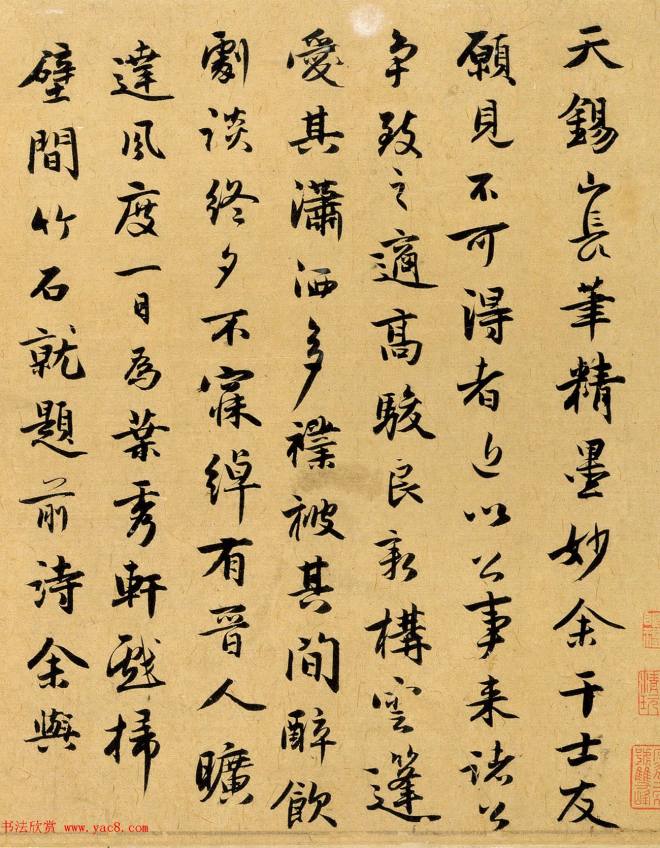 天錫山長筆精墨妙余千士友
願見不可得者近以公事来诸公
争致之適高駿良新構雲篷
愛其瀟洒多襆被其間醉飲
劇談終夕不寐綽有晉人曠
達風度一日為葉秀軒戲掃
壁間竹石就題前诗余與
书法欣赏 www.yac8.com